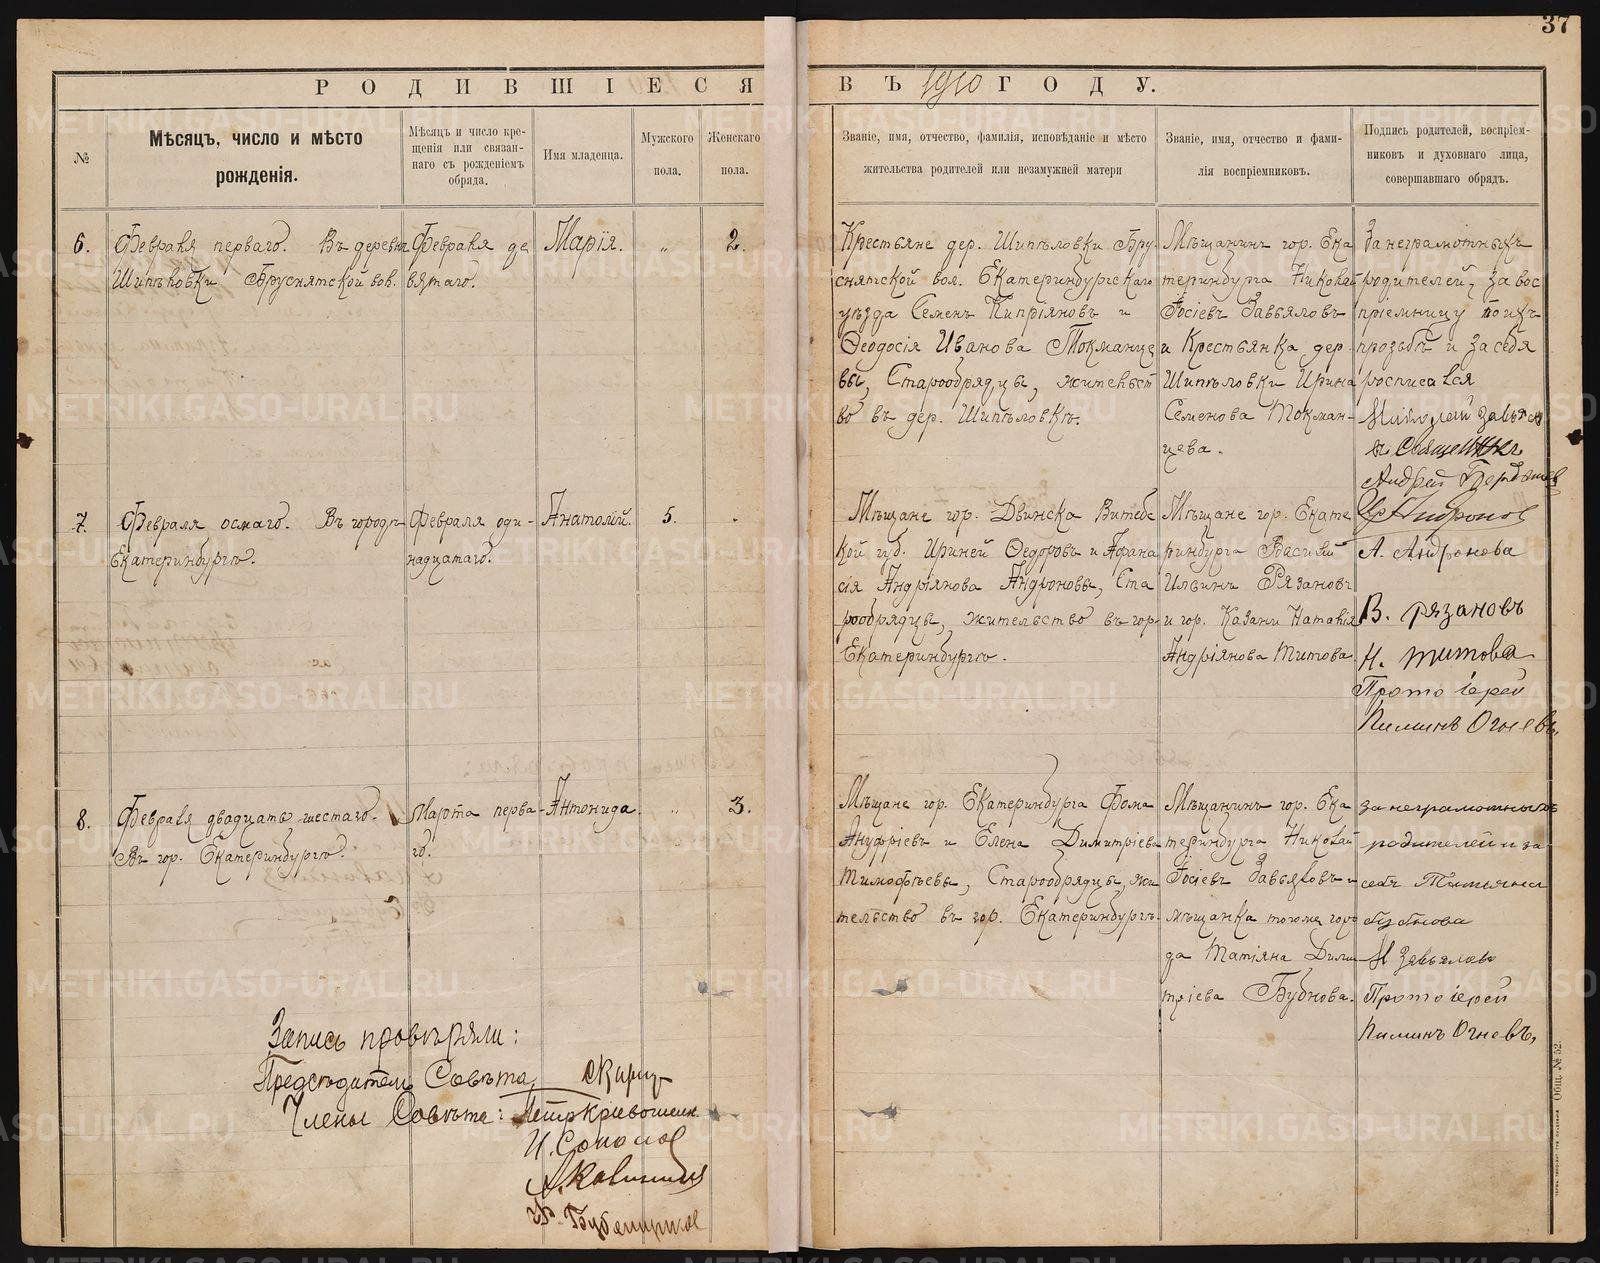 37
РОДИВШІЕСЯ ВЪ 1910 ГОДУ.
№
Мѣсяцъ, число и мѣсто
рожденія.
Мѣсяцъ и число кре-
щенія или связан-
наго съ рожденіемъ
обряда.
Имя младенца.
Мужского
пола.
Женскаго
пола.
Званіе, имя, отчество, фамилія, исповѣданіе и мѣсто
жительства родителей или незамужней матери
Званіе, имя, отчество и фами-
лія воспріемниковъ.
Подпись родителей, воспріем-
никовъ и духовнаго лица,
совершавшаго обрядъ.
6.
Февраля перваго. Въ деревнѣ
Шипѣловки Бруснятской вол.
Февраля де
вятаго.
Марія.
„
2.
Крестьяне дер. Шипѣловки Бру-
снятской вол. Екатеринбургскаго
уѣзда Семенъ Кипріяновъ и
Феодосія Иванова Токманце
вы, Старообрядцы, жительст
во въ дер. Шипѣловкѣ.
Мѣщанинъ гор. Ека
теринбурга Николай
Іосіевъ Завьяловъ
и Крестьянка дер.
Шипѣловки Ирина
Семенова Токман-
цева.
За неграмотныхъ
родителей, за вос
пріемницу по ихъ
прозьбѣ и за себя
росписался
Николай Завьяло
въ Священникъ
Андрей Бердышев
7.
Февраля осмаго. Въ городѣ
Екатеринбургѣ.
Февраля оди-
надцатаго.
Анатолій.
5.
Мѣщане гор. Двинска Витебс
кой губ. Ириней Федоровъ и Афана
сія Андріянова Андроновы, Ста
рообрядцы, жительство въ гор.
Екатеринбургѣ.
Мѣщане гор. Екате
ринбурга Василій
Ильинъ Рязановъ
и гор. Казани Наталія
Андріянова Титова.
Андронов
А. Андронова
В. Рязановъ
Н. Титова
Протоіерей
Пиминъ Огневъ.
8.
Февраля двадцать шестаго.
Въ гор. Екатеринбургѣ.
Марта перва-
го.
Антонида.
„
3.
Мѣщане гор. Екатеринбурга Фома
Ануфріевъ и Елена Димитріева
Тимофѣевы, Старообрядцы, жи
тельство въ гор. Екатеринбургѣ.
Мѣщанинъ гор. Ека
теринбурга Николай
Іосіевъ Завьяловъ и
мѣщанка тогоже горо
да Татіяна Дими
тріева Бубнова.
за неграмотныхъ
родителей и за
себя Татьяна
Бубнова
Н Завьяловъ
Протоіерей
Пиминъ Огневъ,
Запись провѣряли:
Предсѣдатель Совѣта,
Члены Совѣта: Петръ Кривошеин
И. Соколов
Общ. № 52.
METRIKI.GASO-URAL.RU